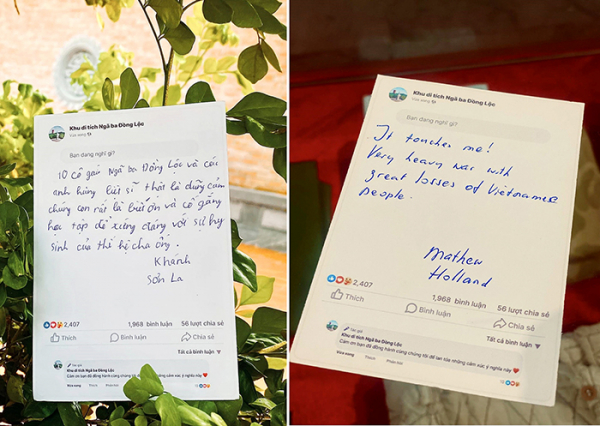 Khu di tích Ngã ba Đồng Lộc
Vừa xong
Bạn đang nghĩ gì?
10 cô gái Ngã ba Đồng Lộc và các
anh hùng liệt sĩ thật là dũng cảm
chúng con rất là biết ơn và cố gắng
học tập để xứng đáng với sự hy
sinh của thế hệ cha ông.
Khánh
Sơn La
2,407
1,968 bình luận
56 lượt chia sẻ
Thích
Bình luận
Chia sẻ
Tất cả bình luận
Tác giả
Khu di tích Ngã ba Đồng Lộc
Cảm ơn bạn đã đồng hành cùng chúng tôi để lan tỏa những cảm xúc, ý nghĩa này
Vừa xong Thích Phản hồi
Khu di tích Ngã ba Đồng Lộc
Vừa xong
Bạn đang nghĩ gì?
It touches me!
Very heavy war with
great losses of Vietnamese
people.
Mathew
Holland
2,407
1,968 bình luận
56 lượt chia sẻ
Thích
Bình luận
Chia sẻ
Tất cả bình luận
Tác giả
Khu di tích Ngã ba Đồng Lộc
Cảm ơn bạn đã đồng hành cùng chúng tôi để lan tỏa những cảm xúc, ý nghĩa này
Vừa xong Thích Phản hồi